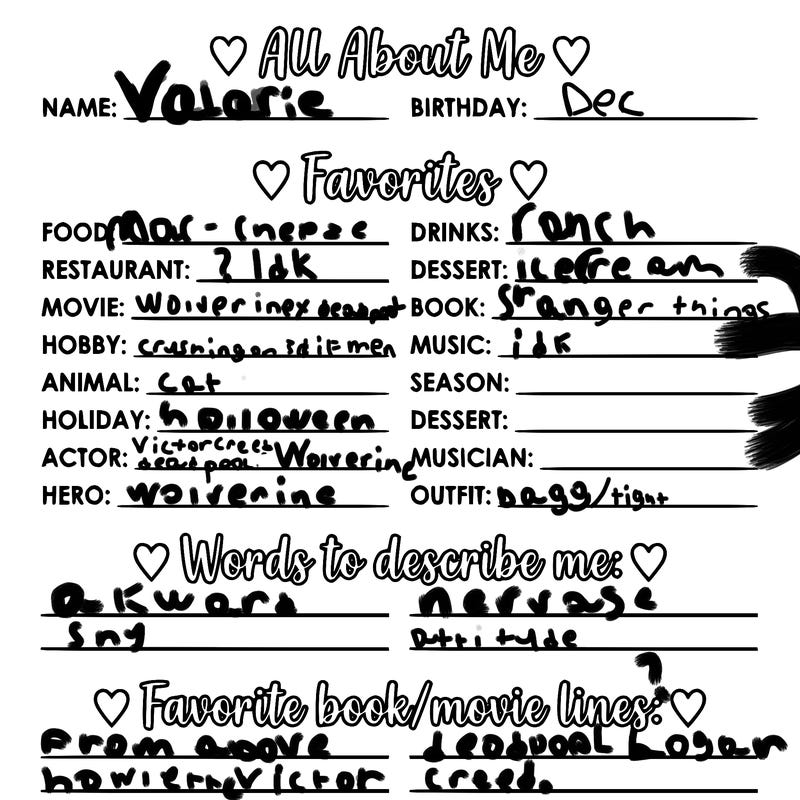 All About Me
NAME: Valarie BIRTHDAY: Dec
Favorites
FOOD: Mac - cheese DRINKS: ranch
RESTAURANT: ? Idk DESSERT: icecream
MOVIE: Wolverinex deadpool BOOK: Stranger things
HOBBY: crushing on MUSIC: idk
ANIMAL: cat SEASON:
HOLIDAY: halloween DESSERT:
ACTOR: Victor creed deadpool Wolverine MUSICIAN:
HERO: wolverine OUTFIT: bagg/tight
Words to describe me:
akward nervase
shy attitude
?
Favorite book/movie lines:
From above deadpool Logan
howlett Victor creed.